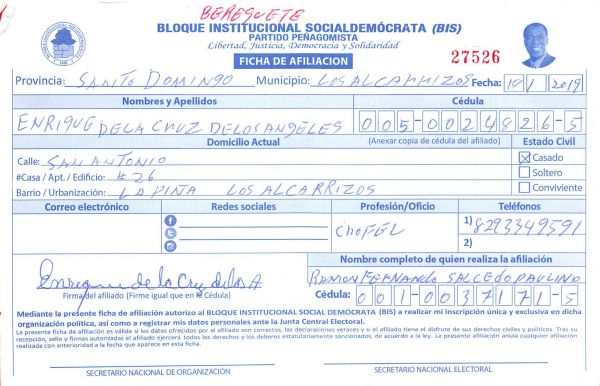 BEREGUETE
BLOQUE INSTITUCIONAL SOCIALDEMÓCRATA (BIS)
PARTIDO PEÑAGOMISTA
Libertad, Justicia, Democracia y Solidaridad
FICHA DE AFILIACION
27526
Provincia: SANTO DOMINGO Municipio: LOS ALCARRIZOS Fecha: 10/1/2019
Nombres y Apellidos Cédula
ENRIQUE DE LA CRUZ DE LOS ANGELES 005-0024826-5
Domicilio Actual (Anexar copia de cédula del afiliado) Estado Civil
Calle: SAN ANTONIO Casado
#Casa / Apt. / Edificio: #26 Soltero
Barrio / Urbanización: LA PIÑA LOS ALCARRIZOS Conviviente
Correo electrónico Redes sociales Profesión/Oficio Teléfonos
CHOFEL 1) 8293349591
2)
Nombre completo de quien realiza la afiliación
Enrique de la Cruz de los A RAMON FERNANDO SALCEDO PAULINO
Firma del afiliado (Firme igual que en la Cédula) Cédula: 001-0037171-5
Mediante la presente ficha de afiliación autorizo al BLOQUE INSTITUCIONAL SOCIAL DEMÓCRATA (BIS) a realizar mi inscripción única y exclusiva en dicha
organización política, así como a registrar mis datos personales ante la Junta Central Electoral.
La presente ficha de afiliación es válida si los datos ofrecidos por el afiliado son correctos, las declaraciones veraces y si el afiliado tiene el disfrute de sus derechos civiles y políticos. Tras su
recepción, sello y firmas autorizadas el afiliado ejercerá todos los derechos y los deberes estatutariamente sancionados, de acuerdo a la ley. La presente afiliación anula cualquier afiliación
realizada con anterioridad a la fecha que aparece en esta ficha.
SECRETARIO NACIONAL DE ORGANIZACIÓN SECRETARIO NACIONAL ELECTORAL